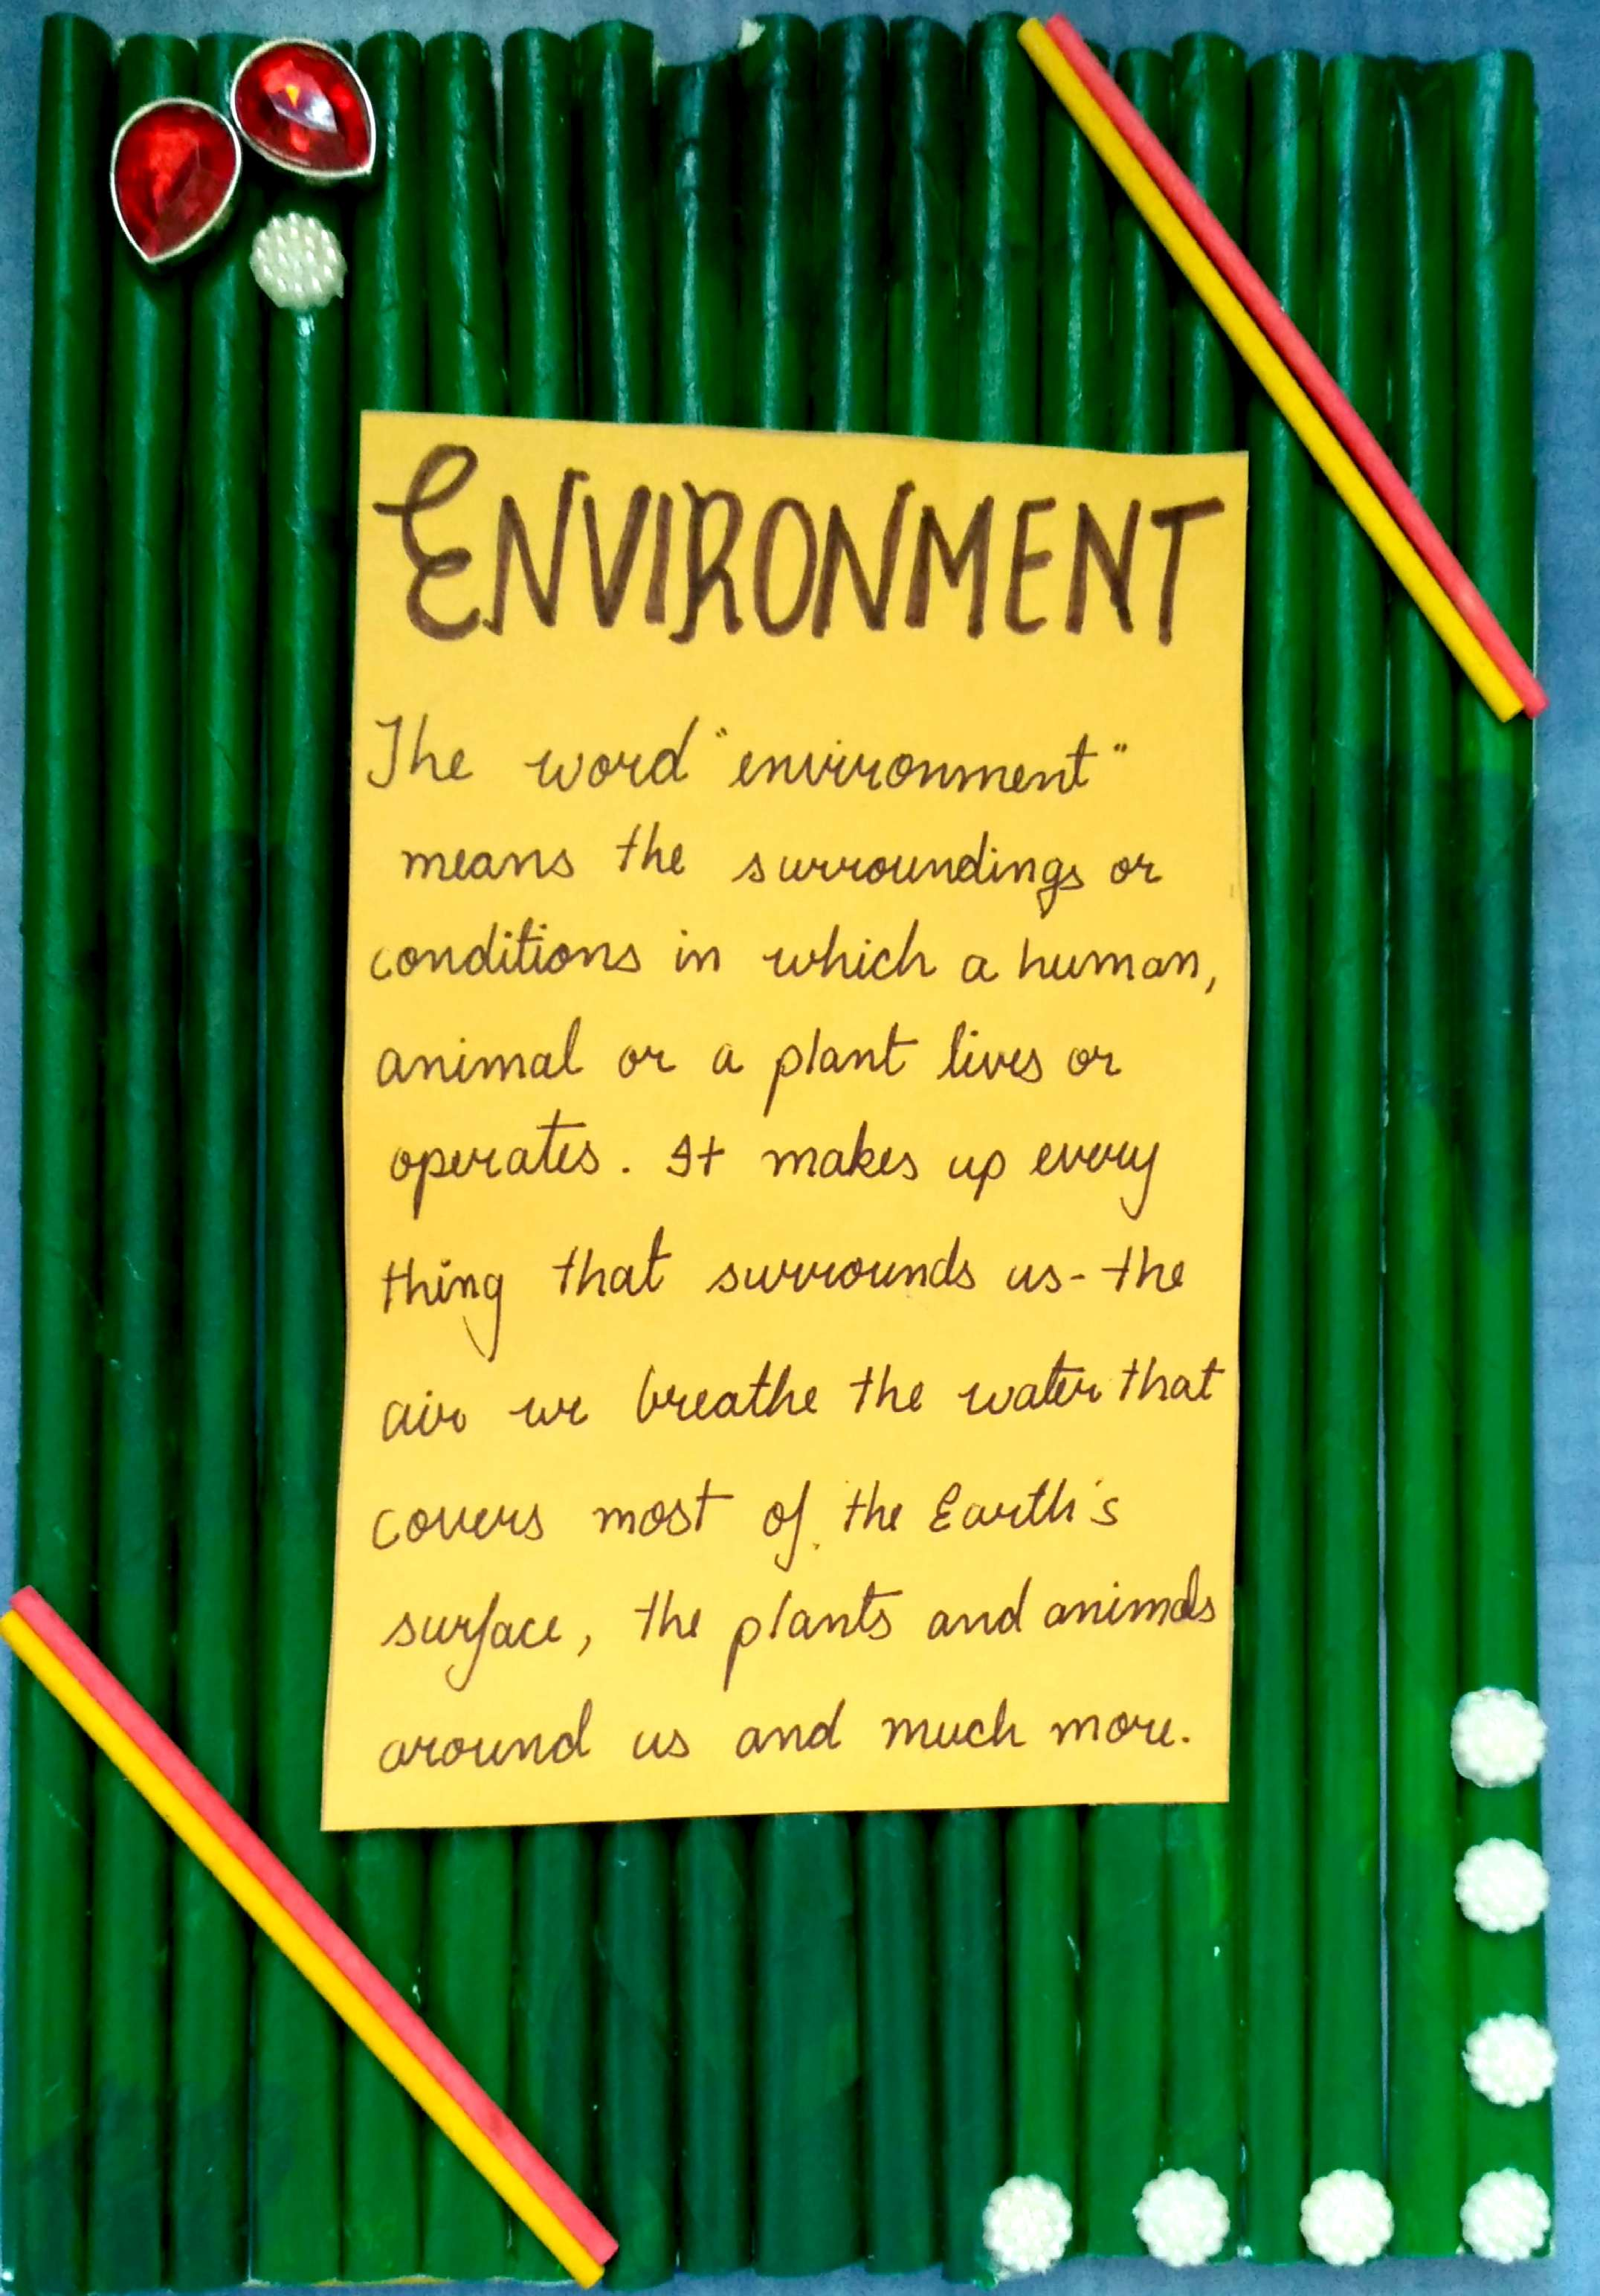 ENVIRONMENT
The word "environment"
means the surroundings or
conditions in which a human,
animal or a plant lives or
operates. It makes up every
thing that surrounds us- the
air we breathe the water that
covers most of the Earth's
surface, the plants and animals
around us and much more.